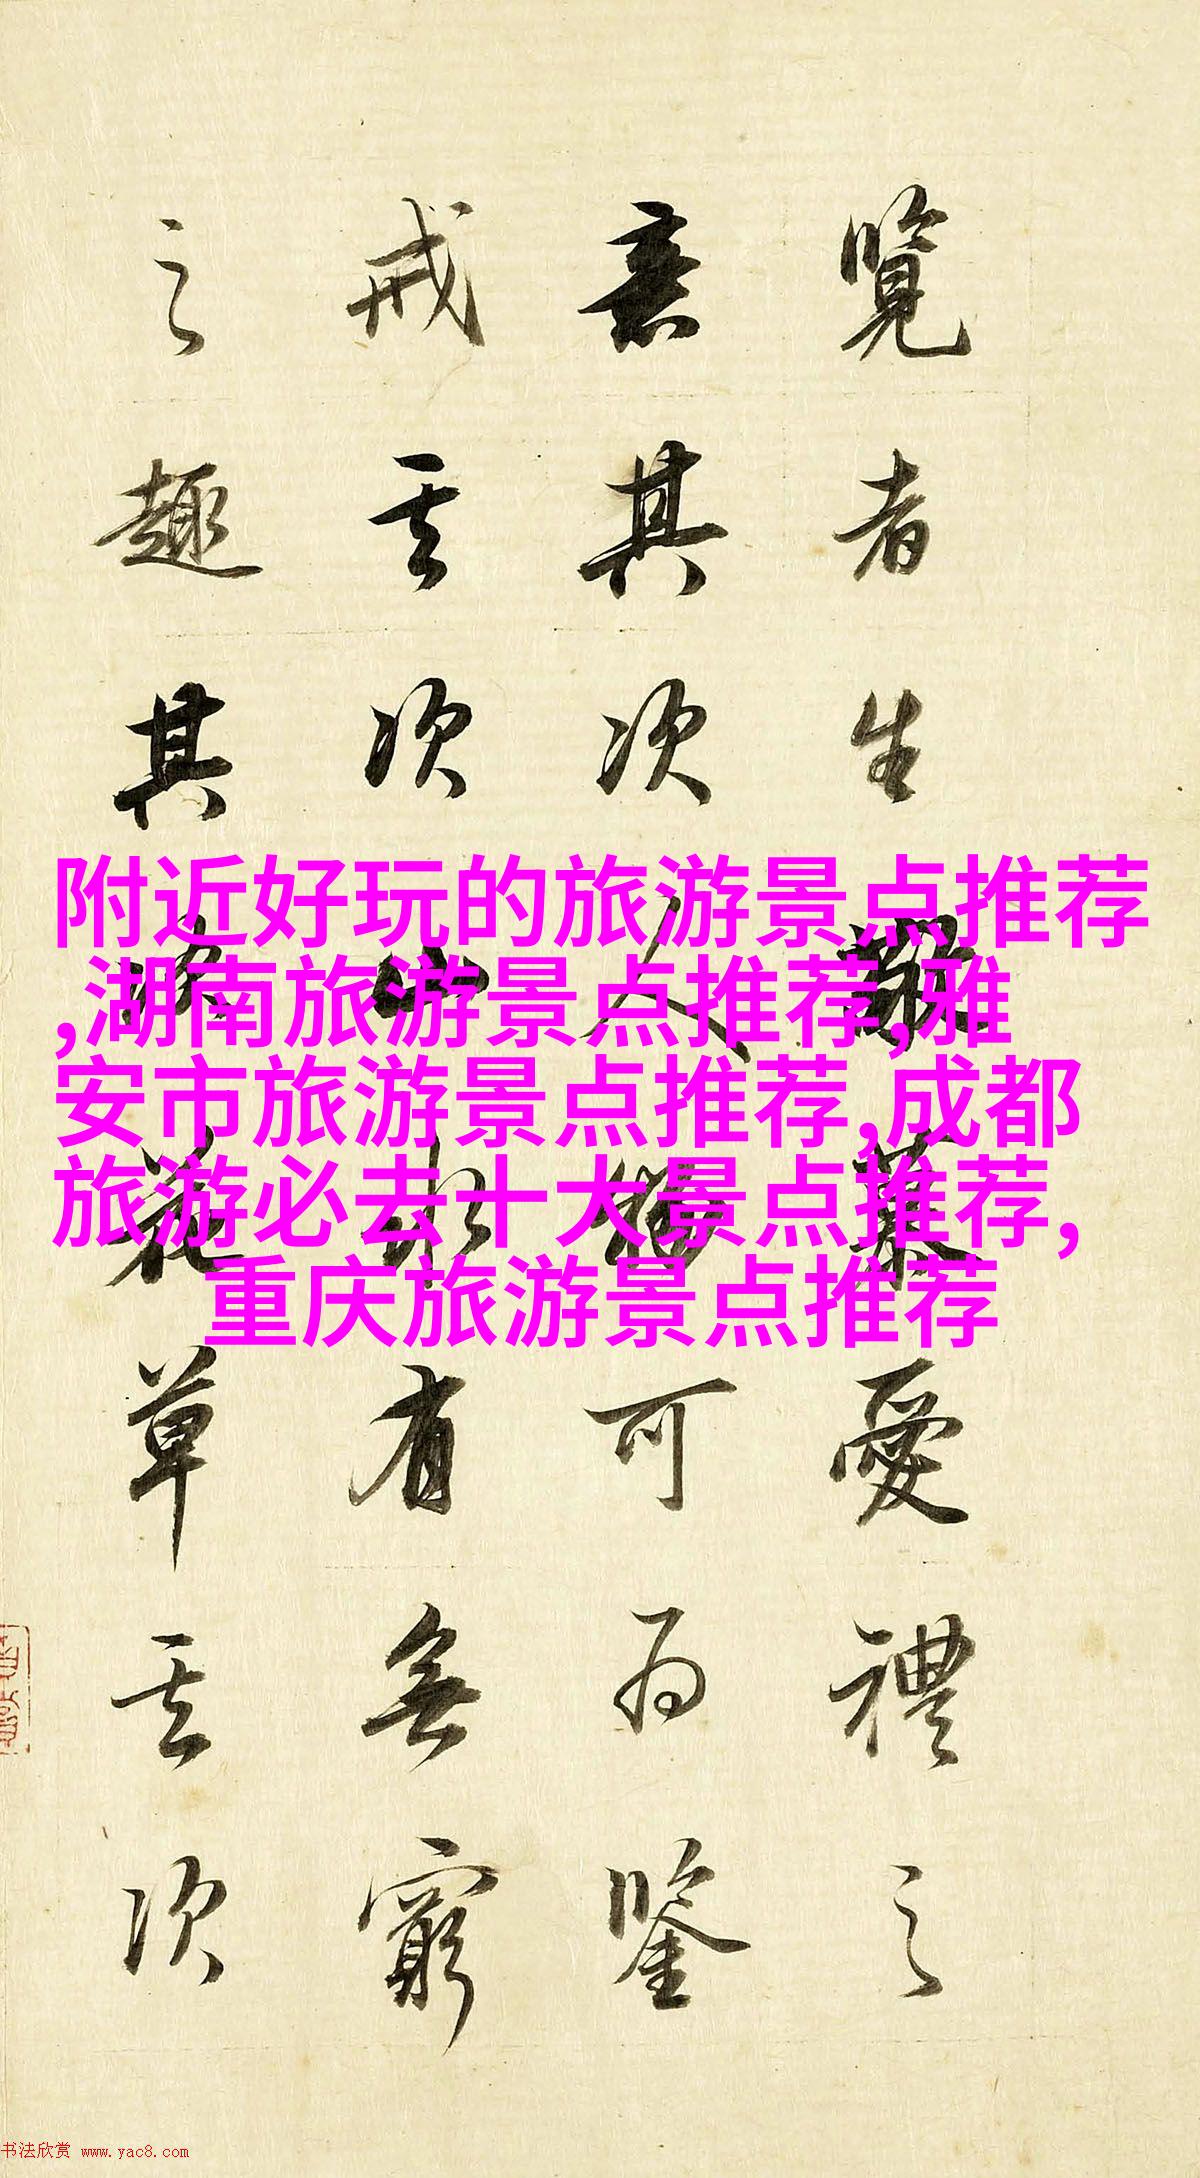 覽者生慕愛禮之
意其次人物可為鑒
戒其次山水有無窮
之趣其次花草其次
附近好玩的旅游景点推荐
,湖南旅游景点推荐,雅
安市旅游景点推荐,成都
旅游必去十大景点推荐,
重庆旅游景点推荐
书法欣赏 www.yac8.com